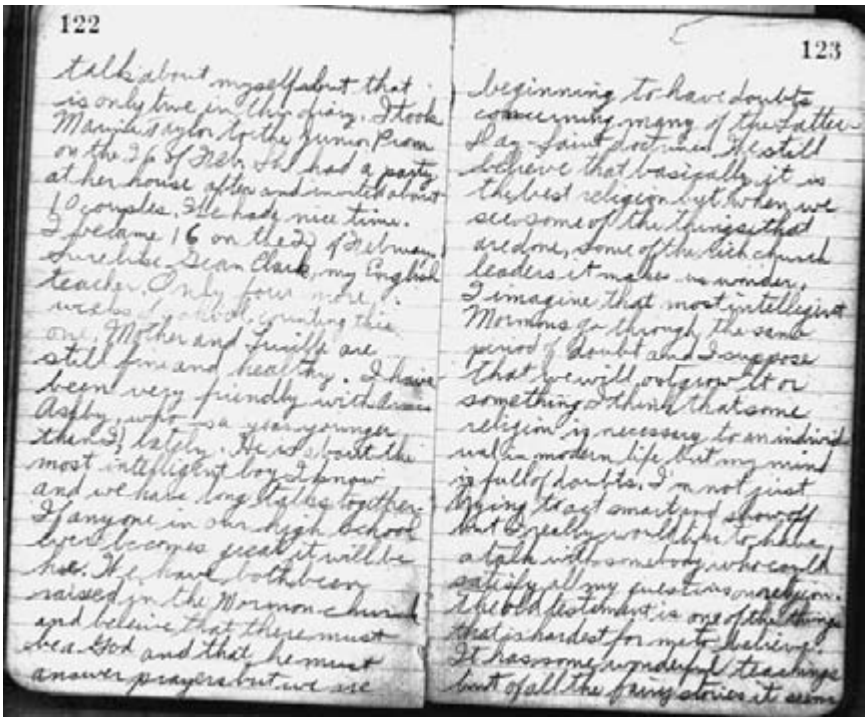 122
talk about myself but that
is only true in this diary. I took
Taylor to the Junior Prom
on the 26 of Feb. She had a party
at her house after and invited about
10 couples. We had a nice time.
I became 16 on the 22 of February.
Sure like Jean Clark, my English
teacher. Only four more
weeks of school, counting this
one. Mother and Lucille are
still fine and healthy. I have
been very friendly with
Ashby, who is a year younger
then I, lately. He is about the
most intelligent boy I know
and we have long talks together.
If anyone in our high school
ever becomes great it will be
he. We have both been
raised in the Mormon church
and beleive that there must
be a God and that he must
answer prayers but we are
123
beginning to have doubts
concerning many of the Latter-
Day-Saint doctrines. We still
believe that basically it is
the best religion but when we
see some of the things that
are done, some of the rich church
leaders it makes us wonder.
I imagine that most intellegint
Mormons go through the same
period of doubt and I suppose
that we will outgrow it or
something. I think that some
religion is necessary to an individ
ual in modern life but my mind
is full of doubts. I'm not just
trying to act smart and show off
but I really would like to have
a talk with somebody who could
satisfy all my questions on religion.
The old testement is one of the things
that is hardest for me to believe.
It has some wonderful teachings
but of all the fairy stories it seems